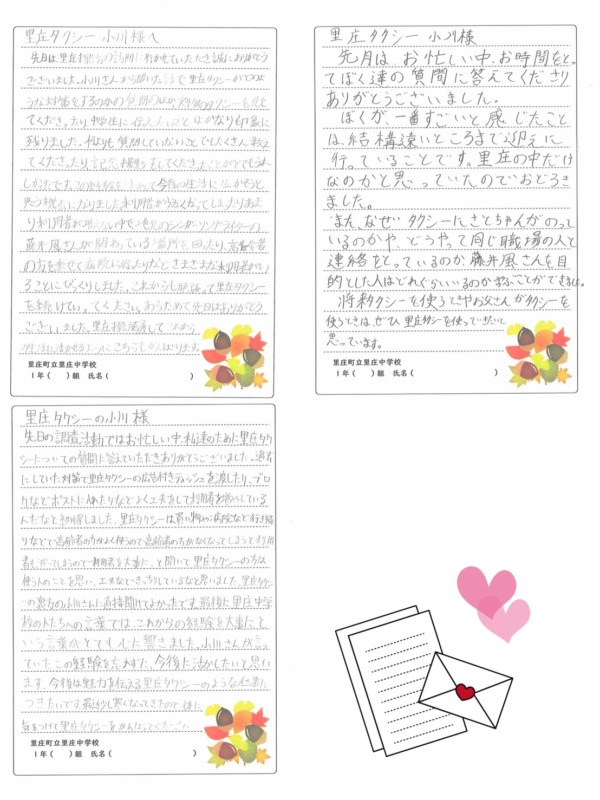 里庄タクシー 小川様へ
先日は里庄探究の訪問に行かせていただき誠にありがとう
ございました。小川さんから聞いた話で里庄タクシーがどのよ
てくださったり、中学生に伝えたいことはかなり印象に
残りました。何よりも質問していないことでもたくさん教え
てくださったり、記念撮影をしてくださ
しかったです。
藤井風さんが関わっている場所を回ったり、高齢者
の方を乗せて病院に
ることにびっくりしました。これからも頑張って里庄タクシー
を続けていってください。あらためて先日はありがとう
ございました。里庄探究
里庄町立里庄中学校
1年( )組 氏名( )
里庄タクシー 小川様
先月は、お忙しい中、お時間をと。
てぼく達の質問に答えてくださり
ありがとうございました。
ぼくが、一番すごいと感じたこと
は、結構遠いところまで迎えに
行っていることです。里庄の中だけ
なのかと思っていたのでおどろき
ました。
また、なぜタクシーにさとちゃんがのって
いるのかや、どうやって同じ職場の人と
連絡をとっているのか、藤井風さんを目
的とした人はどれくらいいるのか学ぶことができました。
将来タクシーを使うときやお父さんがタクシーを
使うときは、ぜひ里庄タクシーを使っていきたいと
思っています。
里庄町立里庄中学校
1年( )組 氏名( )
里庄タクシーの小川様
先日の調査活動ではお忙しい中、私達のために里庄タク
シーについての質問に答えていただきありがとうございました。過去
にしていた対策で里庄タクシーの広告付きティッシュを渡したり、ブロ
グなどポストに入れたりなどよく工夫をして利用者を増やしている
んだなと納得しました。里庄タクシーは買い物や病院など行き帰
りなどで高齢者の方がよく使うので高齢者の方がなくなってしまうと利用
者も減ってしまうので利用者を大事に、と聞いて里庄タクシーの方は
使う人のことを思い、工夫などきっちりしているなと思いました。里庄タクシ
ーの裏方の小川さんに直接聞けてよかったです。最後に里庄中学
校の人たちへの言葉では、これからの経験を大事にと
いう言葉がとても心に響きました。小川さんが言っ
ていたこの経験を忘れずに、今後に活かしたいと思い
ます。今後は魅力を伝える里庄タクシーのような仕事に
つきたいです。最近少し寒くなってきたので体に
気をつけて里庄タクシーをがんばってください。
里庄町立里庄中学校
1年( )組 氏名( )